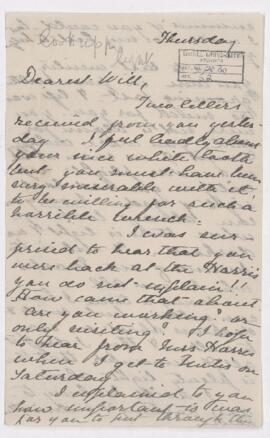 Thursday
Dearest Will,
Two letters
received from you yester-
day I feel badly about
your nice white tooth
but you must have been
very miserable with it
to be willing for such a
horrible wrench.
I was sur-
prised to hear that you
were back at the Harris
you do not explain!!
How came that about
are you working? or
only visiting? I hope
to hear from Mrs Harris
when I get to Utica on
Saturday.
I explained to you
how important it was
for you to put through the